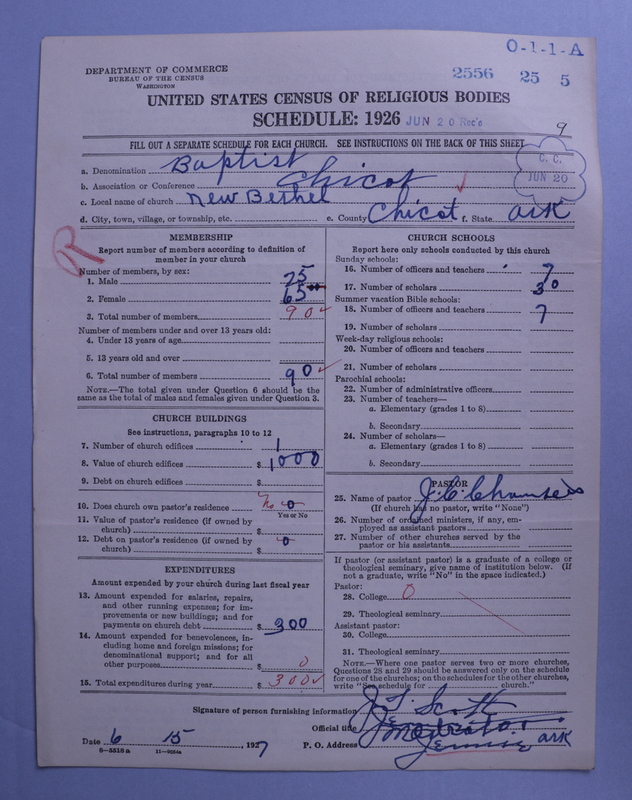 O-1-1-A
DEPARTMENT OF COMMERCE
BUREAU OF THE CENSUS
WASHINGTON
2556 25 5
UNITED STATES CENSUS OF RELIGIOUS BODIES
SCHEDULE: 1926 JUN 20 Rec'd
9
FILL OUT A SEPARATE SCHEDULE FOR EACH CHURCH. SEE INSTRUCTIONS ON THE BACK OF THIS SHEET
C. C.
JUN 20
a. Denomination Baptist
b. Association or Conference Chicot
c. Local name of church New Bethel
d. City, town, village, or township, etc. e. County Chicot f. State ark
MEMBERSHIP
Report number of members according to definition of
member in your church
Number of members, by sex:
1. Male 25
2. Female 65
3. Total number of members 90
Number of members under and over 13 years old:
4. Under 13 years of age
5. 13 years old and over
6. Total number of members 90
NOTE.—The total given under Question 6 should be the
same as the total of males and females given under Question 3.
CHURCH BUILDINGS
See instructions, paragraphs 10 to 12
7. Number of church edifices 1
8. Value of church edifices $ 1000
9. Debt on church edifices $
10. Does church own pastor's residence No 0
Yes or No
11. Value of pastor's residence (if owned by
church) $
12. Debt on pastor's residence (if owned by
church) $ 0
EXPENDITURES
Amount expended by your church during last fiscal year
13. Amount expended for salaries, repairs,
and other running expenses; for im-
provements or new buildings; and for
payments on church debt $ 300
14. Amount expended for benevolences, in-
cluding home and foreign missions; for
denominational support; and for all
other purposes $ 0
15. Total expenditures during year $ 300
CHURCH SCHOOLS
Report here only schools conducted by this church
Sunday schools:
16. Number of officers and teachers 7
17. Number of scholars 30
Summer vacation Bible schools:
18. Number of officers and teachers 7
19. Number of scholars
Week-day religious schools:
20. Number of officers and teachers
21. Number of scholars
Parochial schools:
22. Number of administrative officers
23. Number of teachers—
a. Elementary (grades 1 to 8)
b. Secondary
24. Number of scholars—
a. Elementary (grades 1 to 8)
b. Secondary
PASTOR
25. Name of pastor J. C.
(If church has no pastor, write "None")
26. Number of ordained ministers, if any, em-
ployed as assistant pastors
27. Number of other churches served by the
pastor or his assistants
If pastor (or assistant pastor) is a graduate of a college or
theological seminary, give name of institution below. (If
not a graduate, write "No" in the space indicated.)
Pastor:
28. College 0
29. Theological seminary
Assistant pastor:
30. College
31. Theological seminary
NOTE.—Where one pastor serves two or more churches,
Questions 28 and 29 should be answered only on the schedule
for one of the churches; on the schedules for the other churches,
write "See schedule for church."
Signature of person furnishing information Scott
Official title
Date 6 15, 1927 P. O. Address Jennie ark
8-5518a 11-9954a